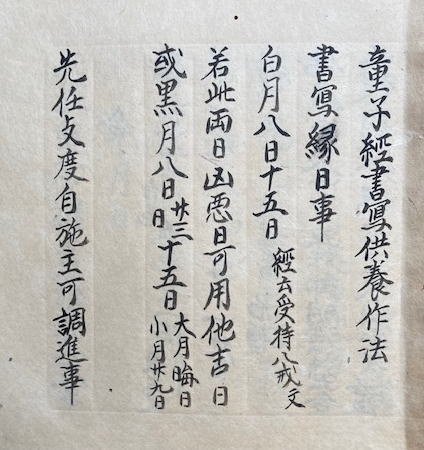 童子經書寫供養作法
書寫縁日事
白月八日十五日 經云受持八戒文
若此両日凶悪日可用他吉日
或黒月八日廿三日十五日大月晦日小月廿九日
先任支度自施主可調進事